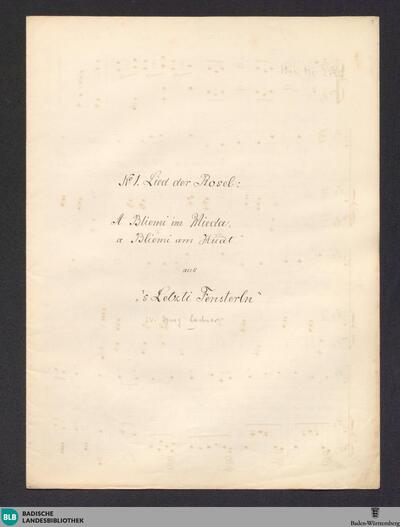 № 1. Lied der Rosel:
A Bliemi im Mieda,
a Bliemi am Huat"
aus
"'s Letzti Fensterln"
v. Ignaz Lachner
BLB
BADISCHE
LANDESBIBLIOTHEK
Baden-Württemberg